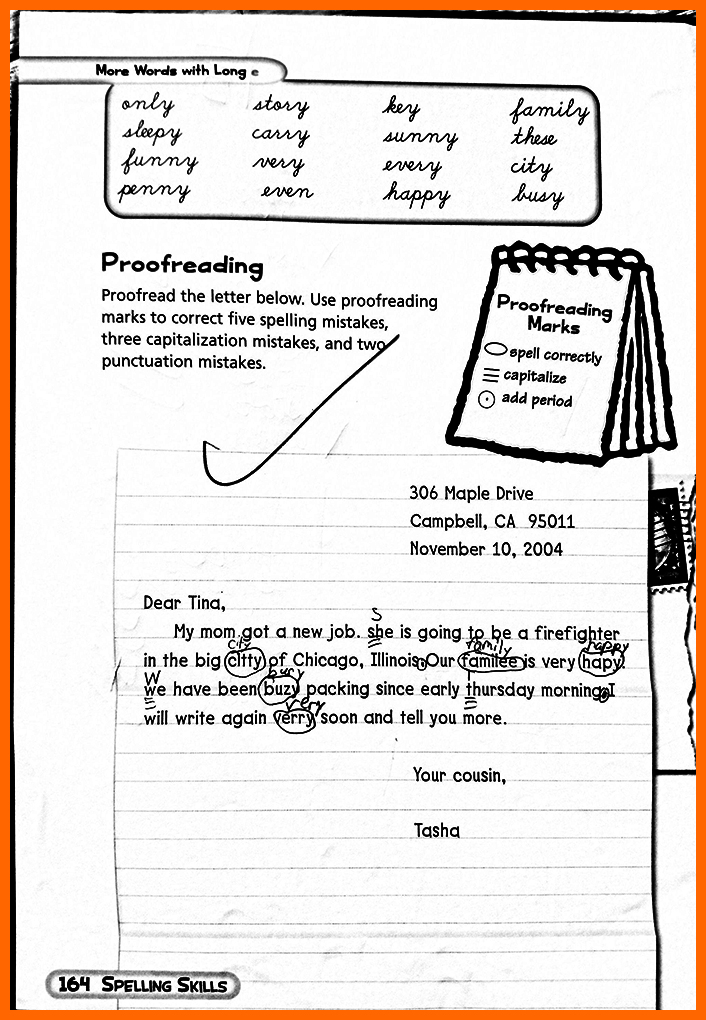 More Words with Long e
only story key family
sleepy carry sunny these
funny very every city
penny even happy busy
Proofreading
Proofread the letter below. Use proofreading
marks to correct five spelling mistakes,
three capitalization mistakes, and two
punctuation mistakes.
Proofreading
Marks
spell correctly
capitalize
add period
306 Maple Drive
Campbell, CA 95011
November 10, 2004
Dear Tina,
S
My mom got a new job. she is going to be a firefighter
city family happy
in the big citty of Chicago, Illinois. Our familee is very hapy.
W busy T
we have been buzy packing since early thursday morning. I
very
will write again verry soon and tell you more.
Your cousin,
Tasha
164 SPELLING SKILLS